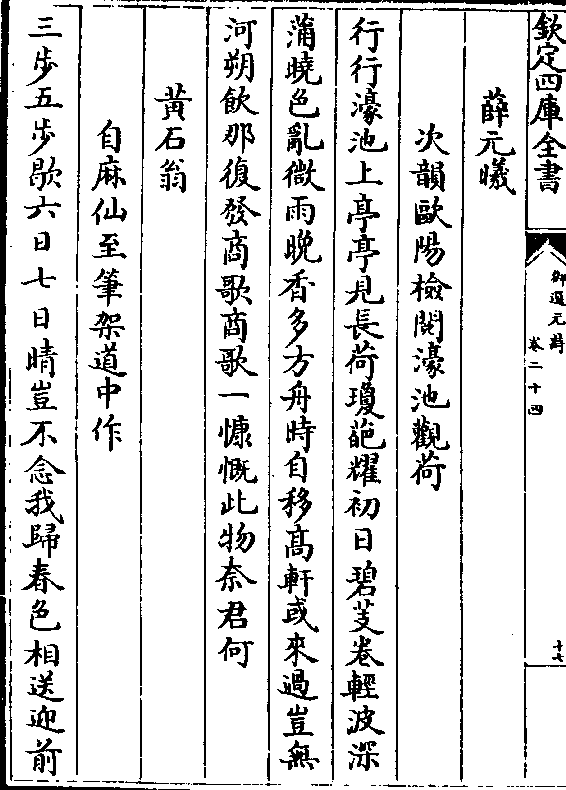 欽定四庫全書
御選元詩
卷二十四
十七
薛元曦
次韻歐陽檢閱濠池觀荷
行行濠池上亭亭見長荷瓊葩耀初日碧芰卷輕波深
蒲曉色亂微雨晚香多方舟時自移高軒或來過豈無
河朔飲那復發商歌商歌一慷慨此物奈君何
黃石翁
自麻仙至筆架道中作
三步五步歇六日七日晴豈不念我歸春色相送迎前